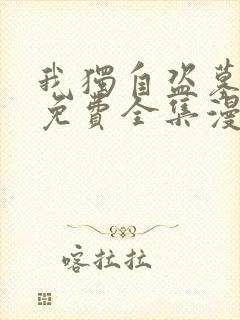 我獨自盜墓
免費全集漫
喀拉拉